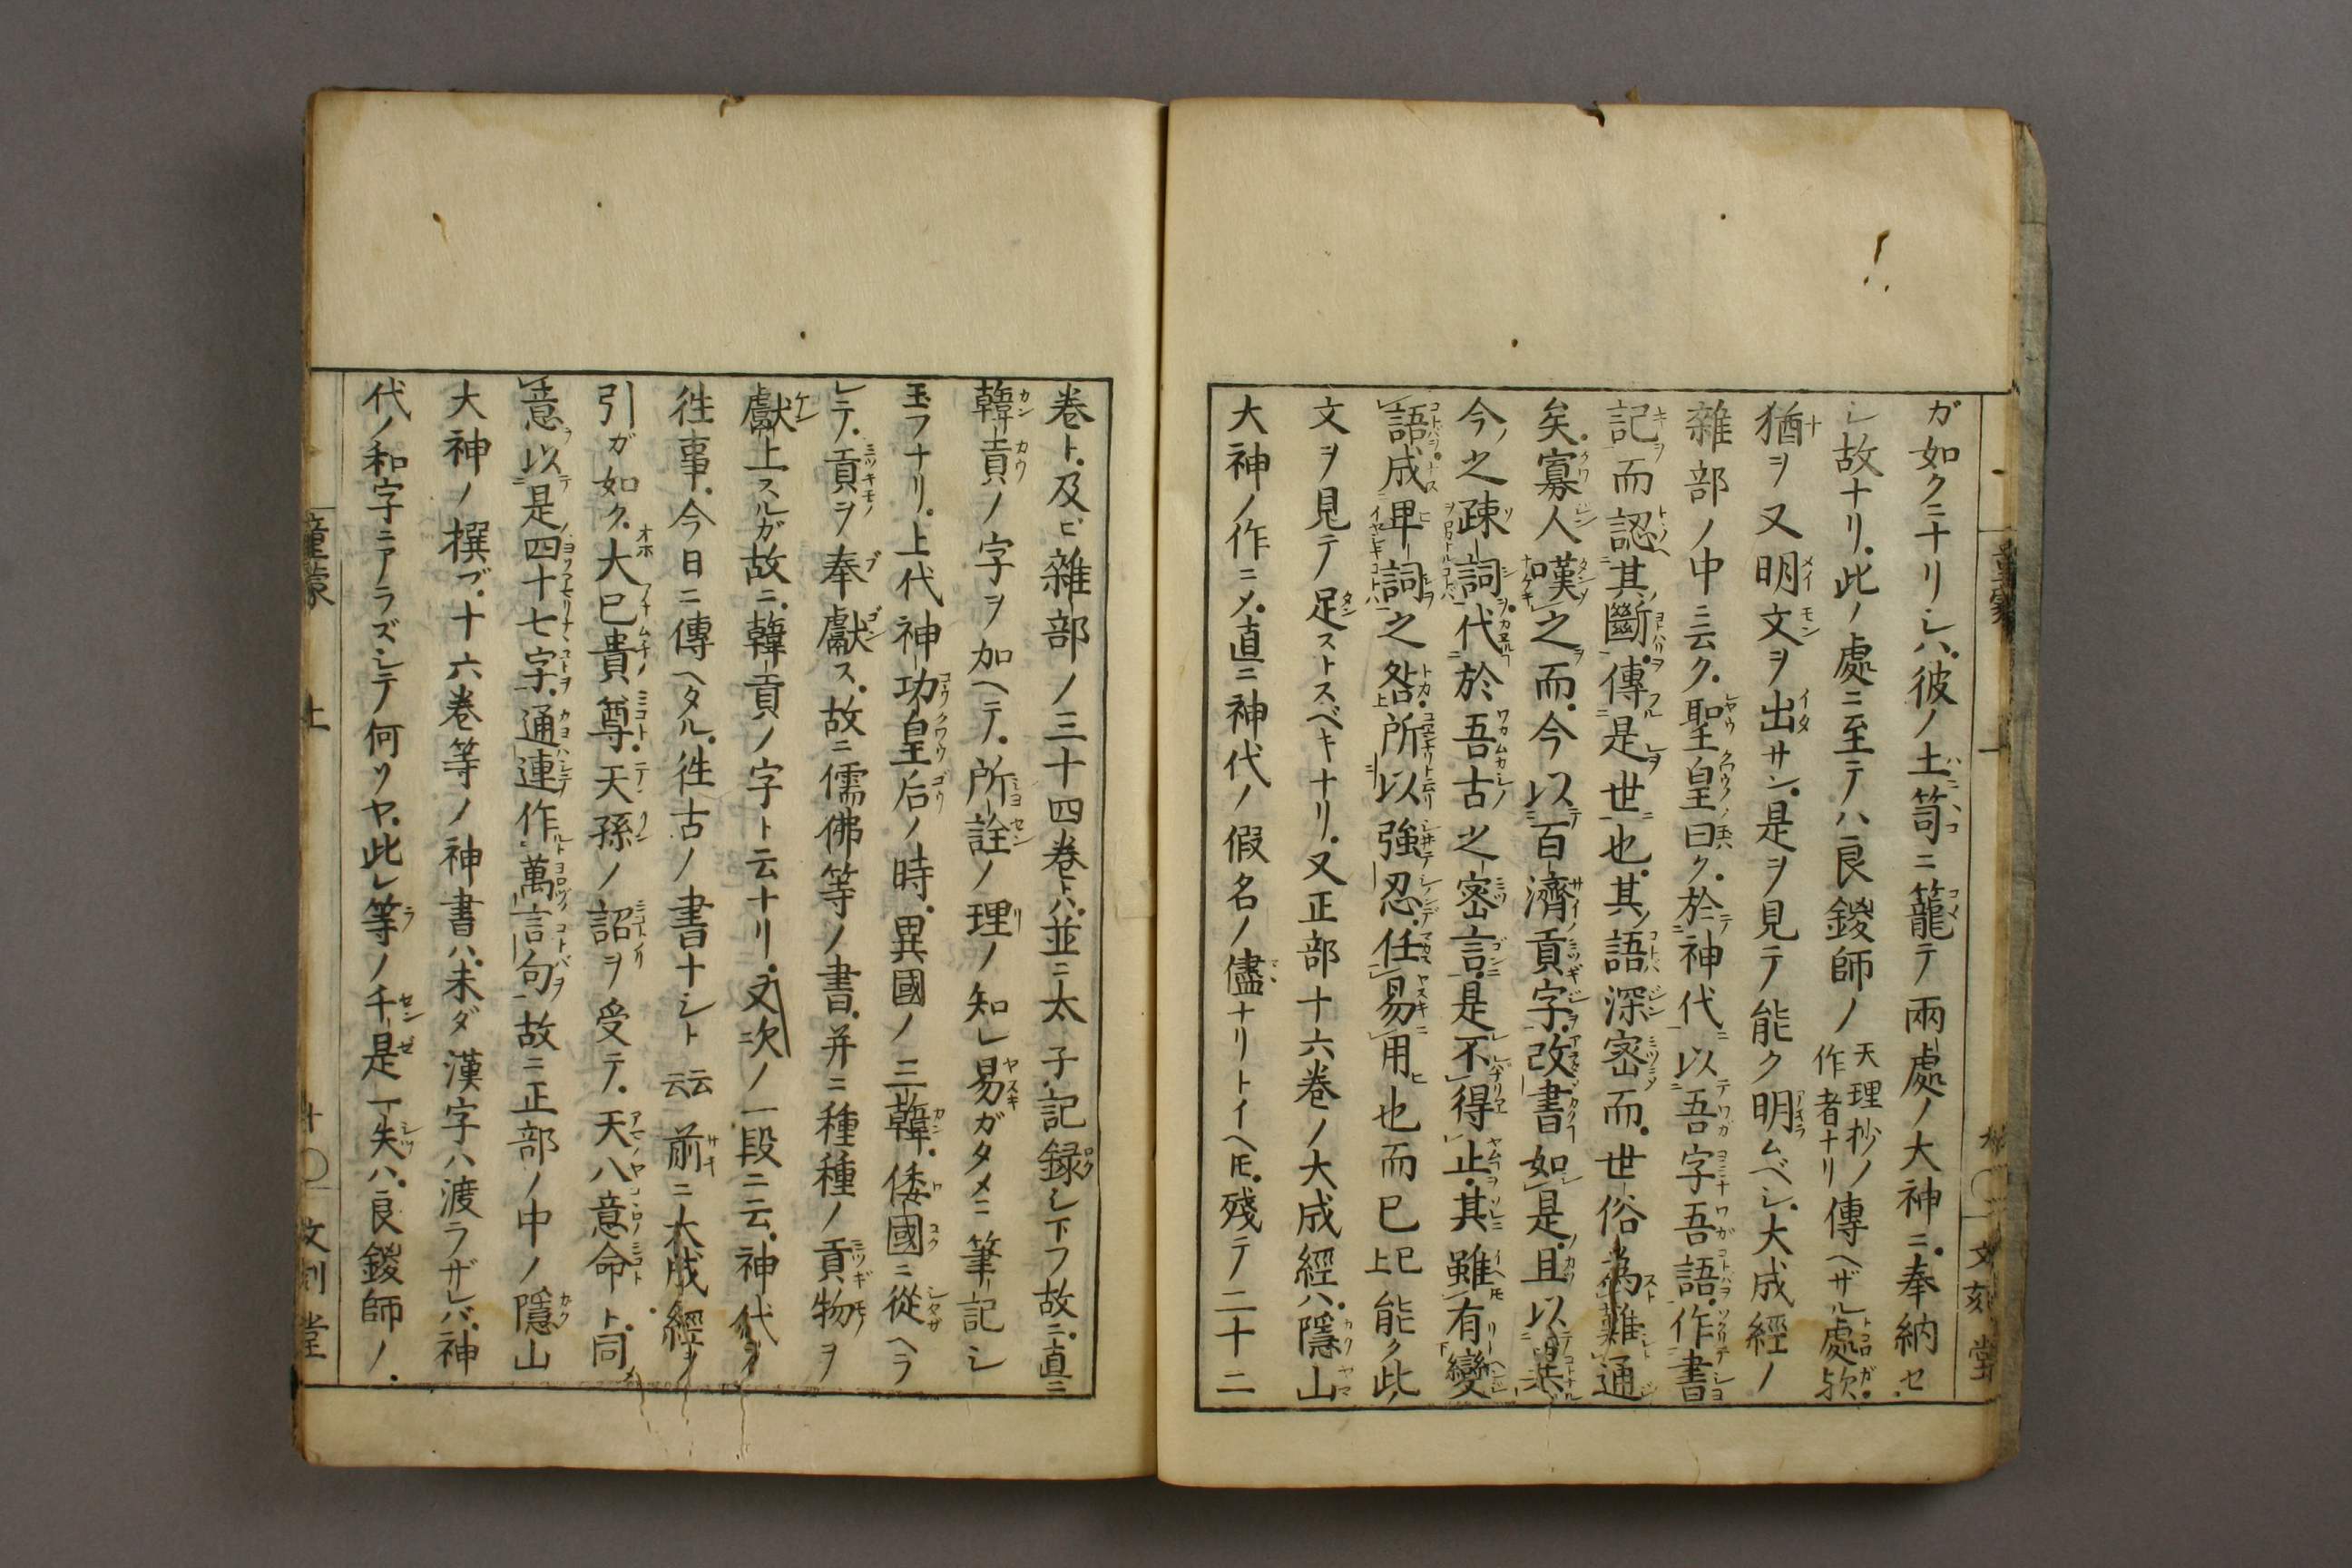 ガ如クニナリシハ彼ノ土笥ニ籠テ兩處ノ大神ニ奉納セ
シ故ナリ此ノ處ニ至テハ良鍐師ノ天理抄ノ作者ナリ傳ヘザル處ガ欤
猶ヲ又明文ヲ出サン是ヲ見テ能ク明ムベシ大成經ノ
雜部ノ中ニ云ク聖皇曰ク於神代以吾字吾語作書
記而認其斷傳是世也其語深密而世俗為難通
矣寡人嘆之而今以百濟貢字改書如是且以漢
今之疎詞代於吾古之密言是不得止其雖有變
語成卑詞之咎所以強忍任易用也而已上已能ク此
文ヲ見テ足ストスベキナリ又正部十六卷ノ大成經ハ隱山
大神ノ作ニメ直ニ神代ノ假名ノ儘ナリトイヘ𪜈殘テ二十二
文刻堂
卷ト及ビ雜部ノ三十四卷トハ並ニ太子記録シ下フ故ニ直ニ
韓貢ノ字ヲ加ヘテ所詮ノ理ノ知レ易ガタメニ筆記シ
玉フナリ上代神功皇后ノ時異國ノ三韓倭國ニ從ヘラ
レテ貢ヲ奉獻ス故ニ儒佛等ノ書并ニ種種ノ貢物ヲ
獻上スルガ故ニ韓貢ノ字ト云ナリ又次ノ一段ニ云神代ノ
徃事今日ニ傳ヘタル徃古ノ書ナシト云云前ニ大成經ヲ
引ガ如ク大已貴尊天孫ノ詔ヲ受テ天八意命ト同
意以是四十七字通連作萬言句故ニ正部ノ中ノ隱山
大神ノ撰ブ十六卷等ノ神書ハ未ダ漢字ハ渡ラザレバ神
代ノ和字ニアラズシテ何ソヤ此レ等ノ千是一失ハ良鍐師ノ
童蒙 上 十 文刻堂